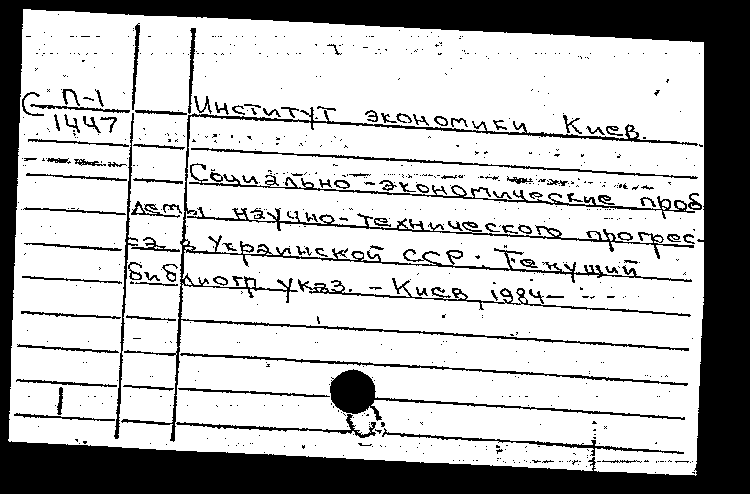 С П-1
1447
Институт экономики Киев.
Социально-экономические проб
лемы научно-технического прогрес-
са в Украинской ССР. Текущий
библиогр. указ. - Киев, 1984-